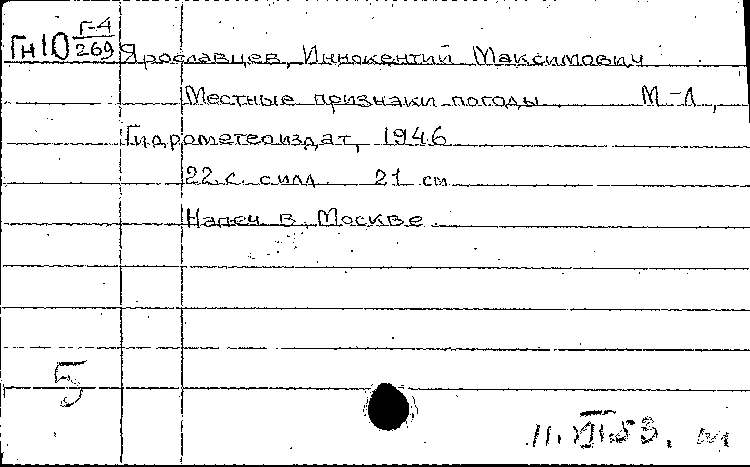 Гн10 Г-4/269 Ярославцев, Иннокентий Максимович
Местные признаки погоды. М.-Л.,
Гидрометеоиздат, 1946
22 с. с илл. 21 см
Напеч. в Москве
5
11.VII.53.